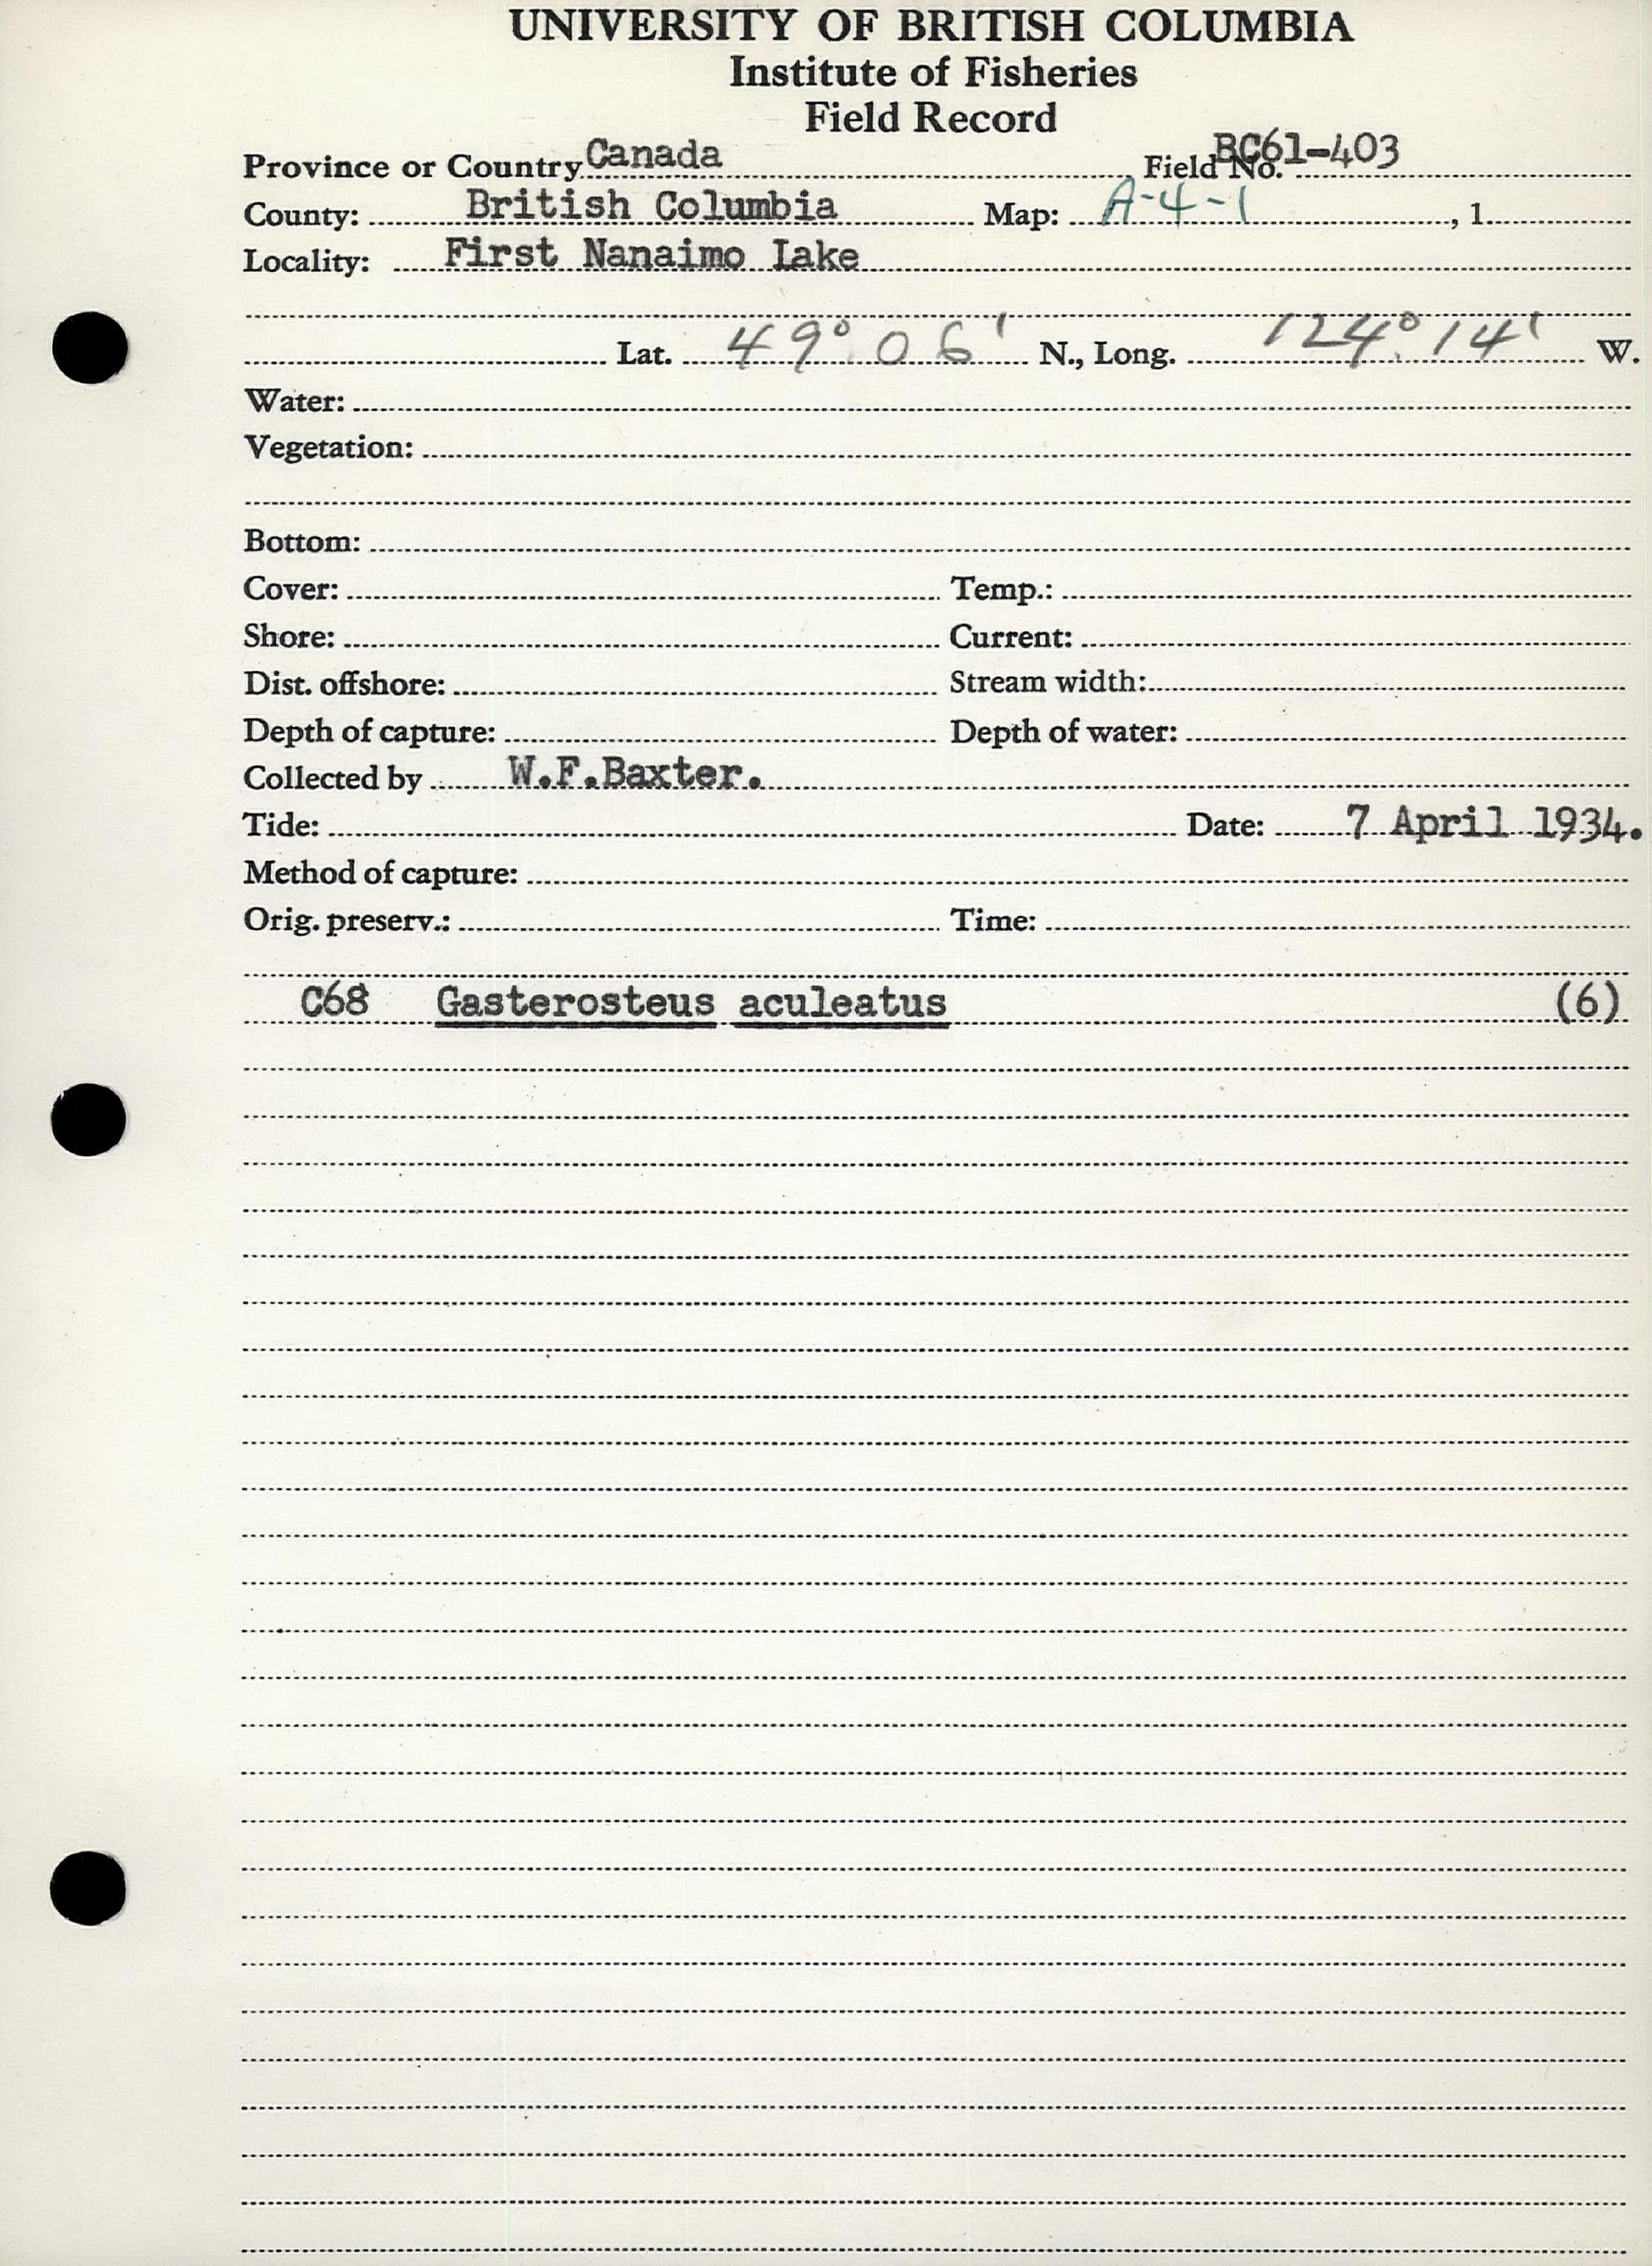 UNIVERSITY OF BRITISH COLUMBIA
Institute of Fisheries
Field Record
Province or Country Canada Field No. BC61-403
County: British Columbia Map: A-4-1 , 1
Locality: First Nanaimo Lake
Lat. 49° 06' N., Long. 124° 14' W.
Water:
Vegetation:
Bottom:
Cover: Temp.:
Shore: Current:
Dist. offshore: Stream width:
Depth of capture: Depth of water:
Collected by W.F.Baxter.
Tide: Date: 7 April 1934.
Method of capture:
Orig. preserv.: Time:
C68 Gasterosteus aculeatus (6)